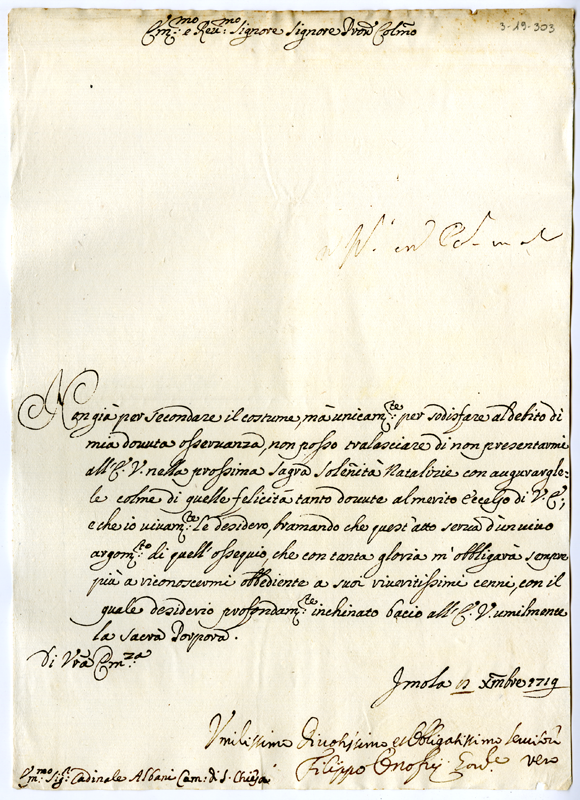 3-19-303
Em:mo e Reu:mo Signore Signore Pron Colmo
Non già per secondare il costume, mà unicam:te per sodisfare al debito di
mia douuta osseruanza, non posso tralasciare di non presentarmi
all'E.V. nella prossima sagra Solenita Natalizie con augurargle-
le colme di quelle felicità tanto douute al merito Eccelso di V.E;
e che io viuam:te le desidero, bramando che quest'atto serua d'un viuo
argom:to di quell'ossequio, che con tanta gloria m'obbligarà sempre
più a riconoscermi obbediente a suoi riueritissimi cenni, con il
quale desiderio profondam:te inchinato bacio all'E.V. umilmente
la sacra Porpora.
Di Vrã Em:za
Jmola 12 Xmbre 1719
Vmilissimo Diuotissimo et Obligatissimo Seruitor
Filippo Onofrij vero
Em:mo Sig: Cardinale Albani Cam: di S. Chiesa